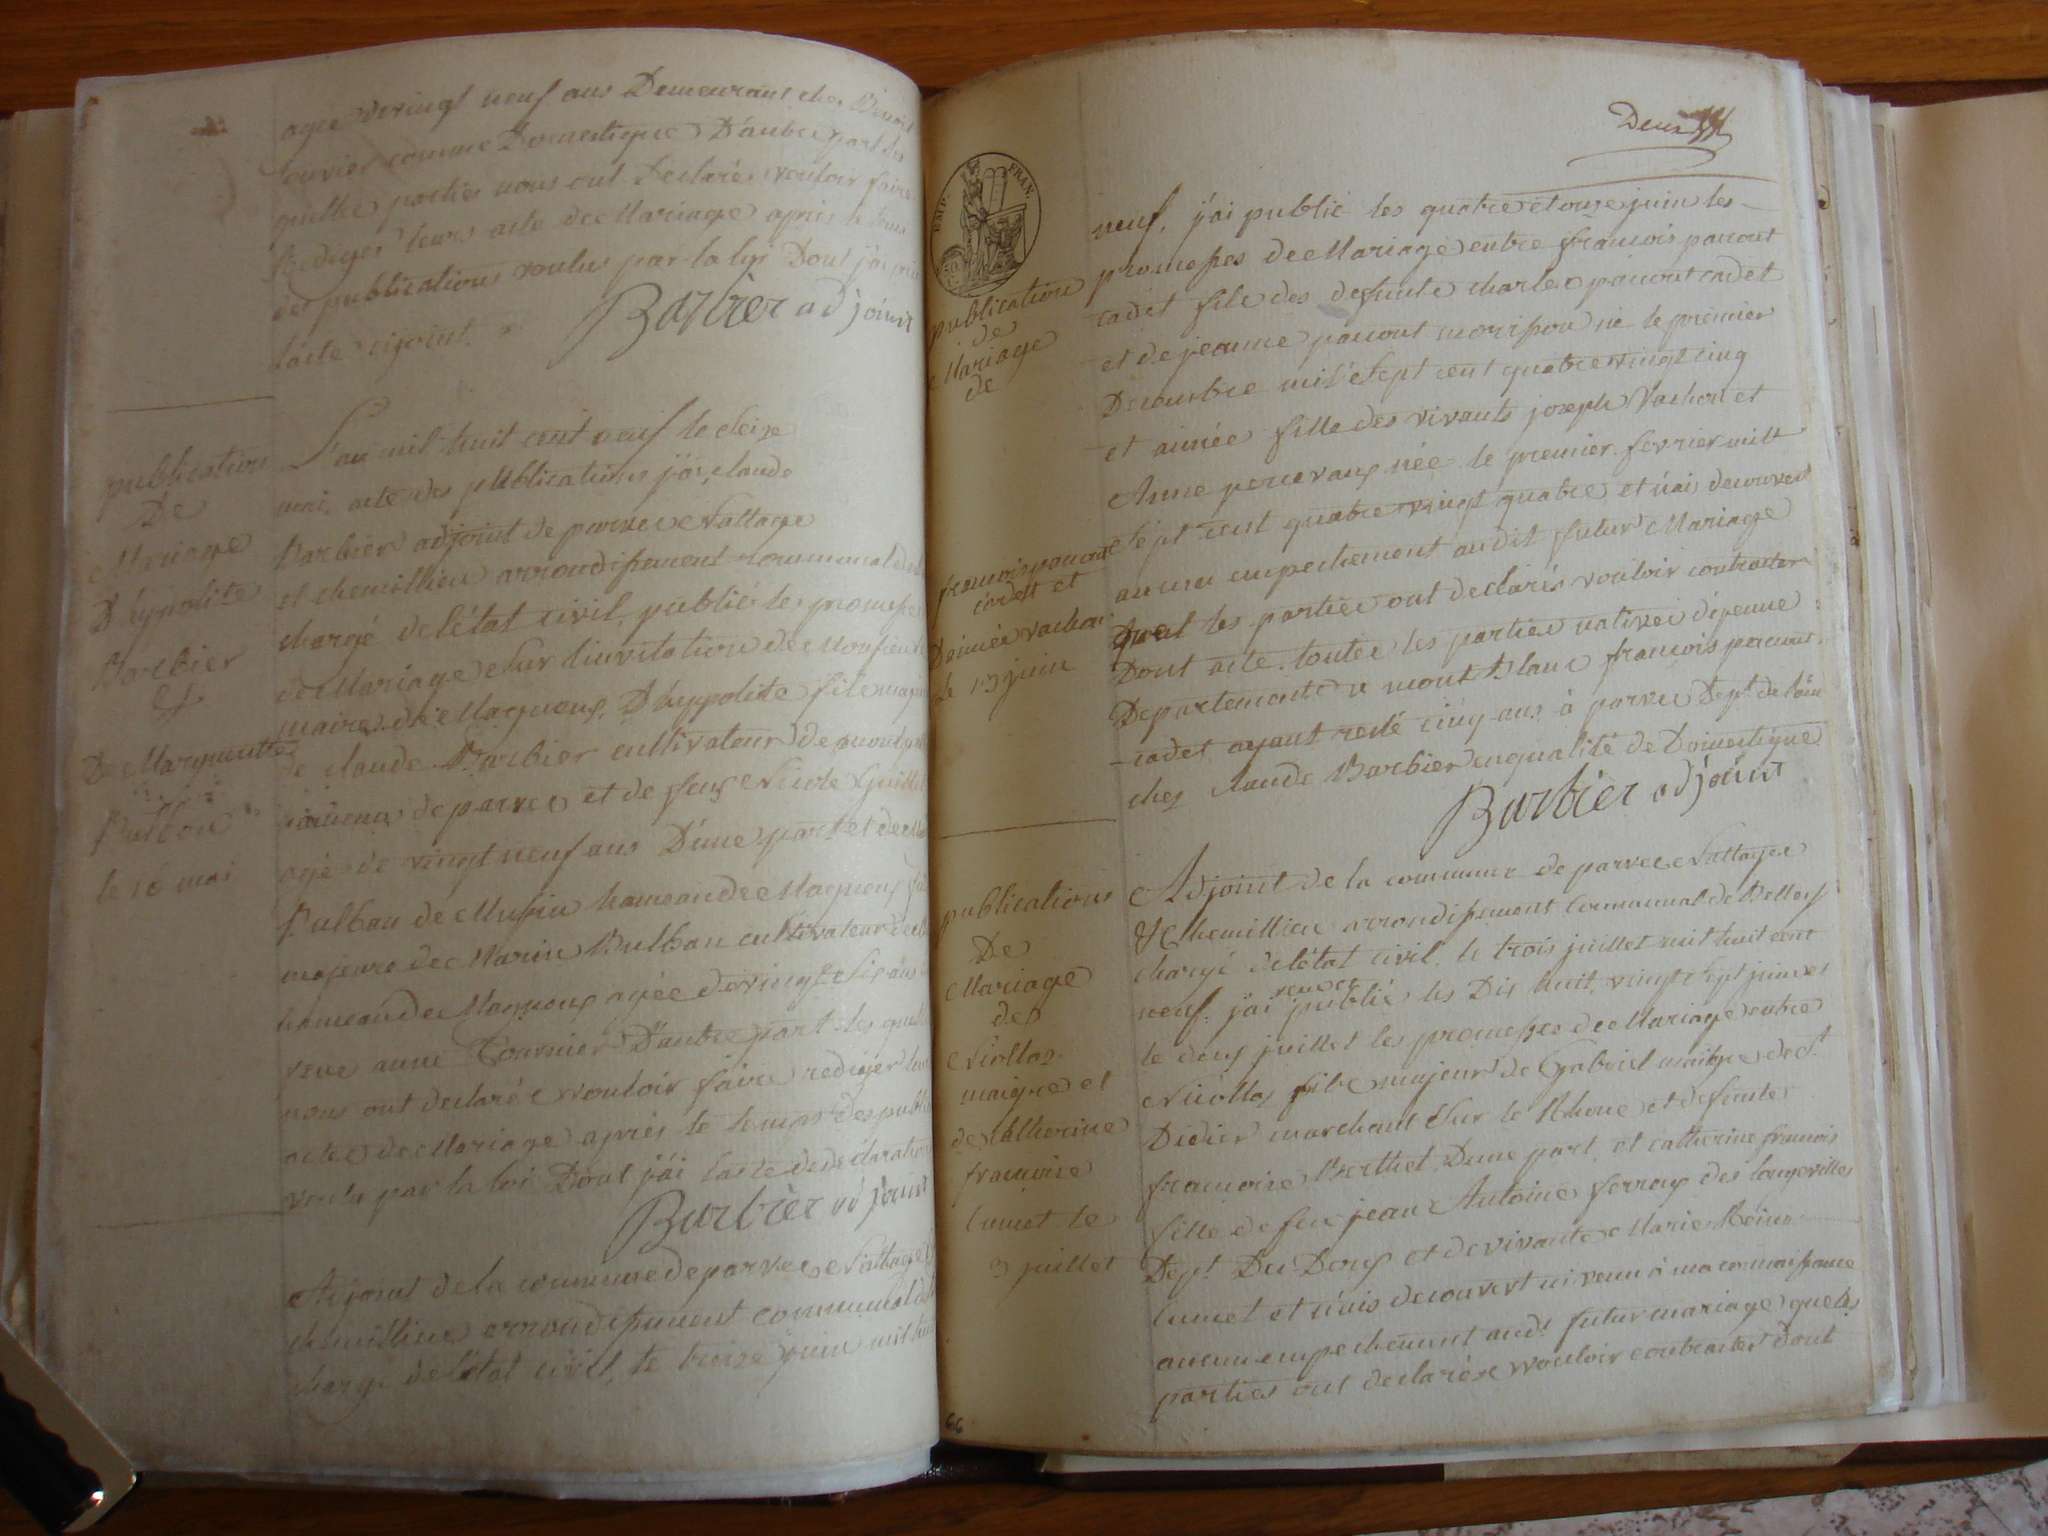 agée de vingt neuf ans Demeurant chez Benoit
comme Domestique D'autre part les
quelles parties nous ont declarés vouloir faire
Rediger leurs acte de Mariage après le tems
des publications voulus par la loi Dont j'ai
l'acte cijoint.
Barbier adjoint
publication
De
Mariage
D'hypolite
Barbier
&
De Marguerite
Bulbou
le 16 mai
L'an mil huit cent neuf le seize
mai, acte des publications j'ai, claude
Barbier adjoint de parves Nattage
et chemillieu arrondissement communal de
chargé de l'état civil, publié les promesses
de Mariage sur l'invitation de Monsieur le
maire de Magneux, D'hyppolite fils majeur
de claude Barbier cultivateur de
de parves et de feux Nicole
agé de vingt neuf ans D'une part et de
Bulbau de Musin hameau de Magneux fille
majeure de Marin Bulbau cultivateur de
hameau de Magneux agée de vingt six ans
veve anne Tournier D'autre part les quelles
nous ont declaré vouloir faire rediger leurs
actes de Mariage après le temps des publi
voulu par la loi Dont j'ai l'acte de declaration
Barbier adjoint
Adjoint de la commune de parves Nattage
chemillieu arrondissement communal de
chargé de l'état civil, le treize juin mil huit
Deux
EMP. FRAN.
publication
de
Mariage
de
francois pacout
cadet et
D'aimée vachon
le 13 juin
neuf, j'ai publié les quatre et onze juin les
promesses de Mariage entre francois pacout
cadet fils des defunts charles pacout cadet
et de jeanne pacout morisson né le premier
Decembre mil sept cent quatre vingt cinq
et aimée fille des vivants joseph Vachon et
Anne né le premier fevrier mill
sept cent quatre vingt quatre et n'ais decouvert
aucun empechement au dit futur Mariage
que les parties ont declarés vouloir contracter
Dont acte. toutes les parties natives d'yenne
Departement du mont Blanc francois pacout
cadet ayant resté cinq ans à parves Dept de l'ain
chez claude Barbier enqualité de Domestique
Barbier adjoint
publications
De
Mariage
de
Niollas
maigre et
de catherine
francoise
cumet le
3 juillet
Adjoint de la commune de parves Nattages
& Chemillieu arrondissement Communal de Belley
chargé de l'état civil. le trois juillet mil huit cent
neuf. j'ai publié les Dix huit, vingt sept juin et
le deux juillet les promesses de Mariage entre
Niollas fils majeur de Gabriel maigre de St
Didier marchant sur le Rhone et defunte
francoise Berthet. D'une part, et catherine francois
fille de feu jean Antoine ferroux des longevilles
Dept Du Doux et de vivante Marie Reine
cumet et n'ais decouvert ni venu à ma connaissance
aucun empechement audt futur mariage que les
parties ont declarés vouloir contracter dont
66